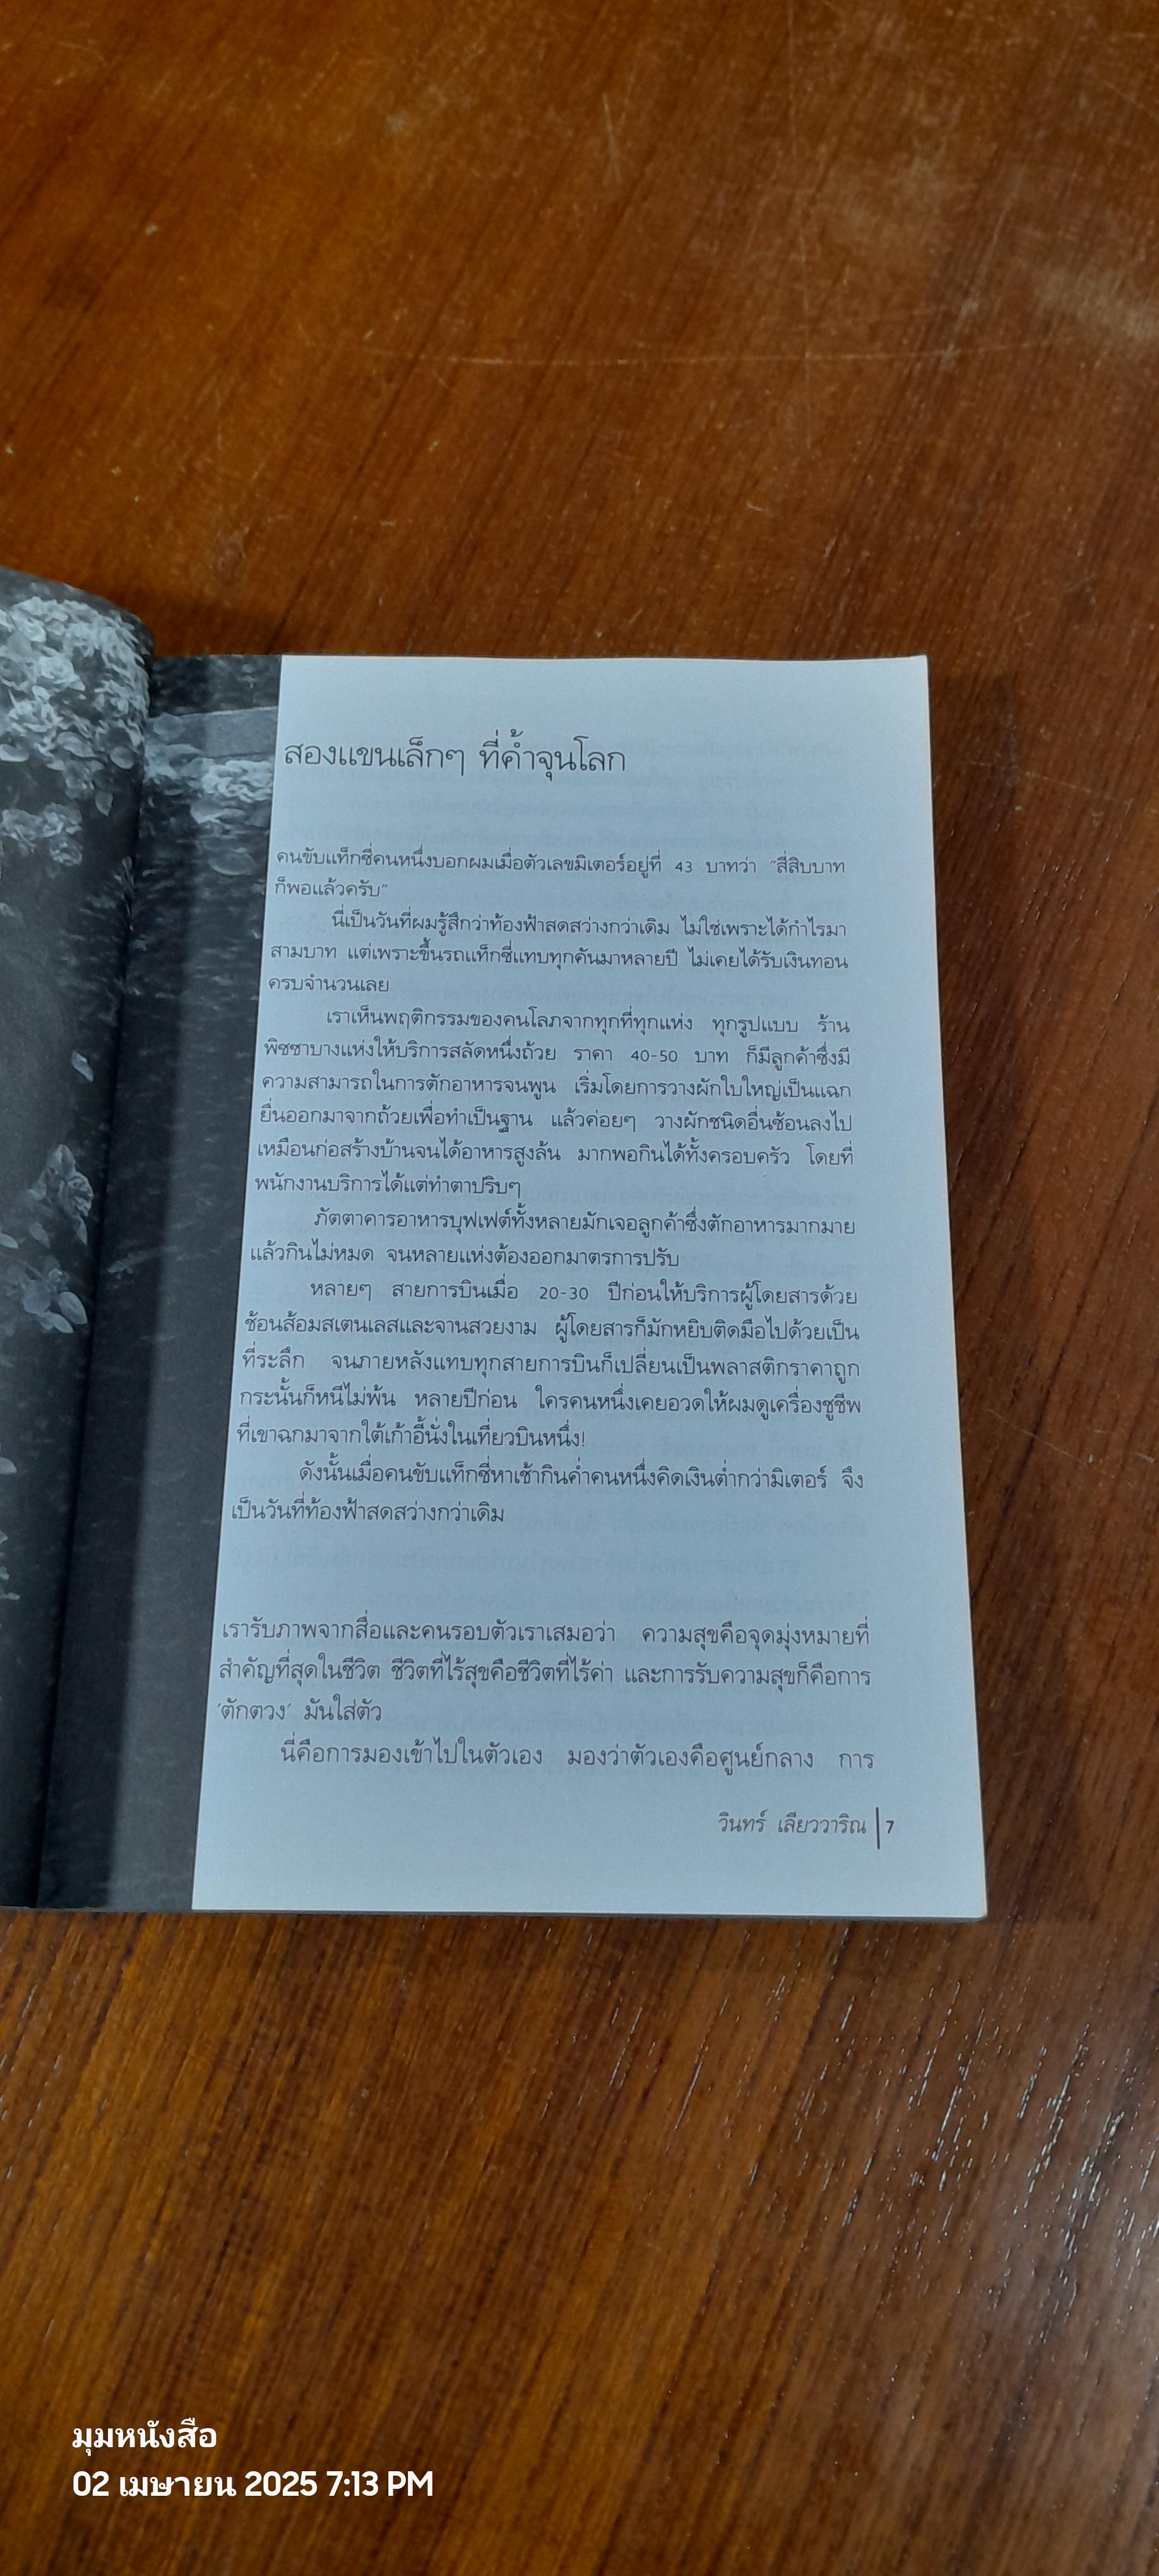 สองแขนเล็กๆ ที่ค้ำจุนโลก
คนขับแท็กซี่คนหนึ่งบอกผมเมื่อตัวเลขมิเตอร์อยู่ที่ 43 บาทว่า “สี่สิบบาท
ก็พอแล้วครับ”
นี่เป็นวันที่ผมรู้สึกว่าท้องฟ้าสดสว่างกว่าเดิม ไม่ใช่เพราะได้กำไรมา
สามบาท แต่เพราะขึ้นรถแท็กซี่แทบทุกคันมาหลายปี ไม่เคยได้รับเงินทอน
ครบจำนวนเลย
เราเห็นพฤติกรรมของคนโลภจากทุกที่ทุกแห่ง ทุกรูปแบบ ร้าน
พิซซาบางแห่งให้บริการสลัดหนึ่งถ้วย ราคา 40-50 บาท ก็มีลูกค้าซึ่งมี
ความสามารถในการตักอาหารจนพูน เริ่มโดยการวางผักใบใหญ่เป็นแฉก
ยื่นออกมาจากถ้วยเพื่อทำเป็นฐาน แล้วค่อยๆ วางผักชนิดอื่นซ้อนลงไป
เหมือนก่อสร้างบ้านจนได้อาหารสูงล้น มากพอกินได้ทั้งครอบครัว โดยที่
พนักงานบริการได้แต่ทำตาปริบๆ
ภัตตาคารอาหารบุฟเฟต์ทั้งหลายมักเจอลูกค้าซึ่งตักอาหารมากมาย
แล้วกินไม่หมด จนหลายแห่งต้องออกมาตรการปรับ
หลายๆ สายการบินเมื่อ 20-30 ปีก่อนให้บริการผู้โดยสารด้วย
ช้อนส้อมสเตนเลสและจานสวยงาม ผู้โดยสารก็มักหยิบติดมือไปด้วยเป็น
ที่ระลึก จนภายหลังแทบทุกสายการบินก็เปลี่ยนเป็นพลาสติกราคาถูก
กระนั้นก็หนีไม่พ้น หลายปีก่อน ใครคนหนึ่งเคยอวดให้ผมดูเครื่องชูชีพ
ที่เขาฉกมาจากใต้เก้าอี้นั่งในเที่ยวบินหนึ่ง!
ดังนั้นเมื่อคนขับแท็กซี่หาเช้ากินค่ำคนหนึ่งคิดเงินต่ำกว่ามิเตอร์ จึง
เป็นวันที่ท้องฟ้าสดสว่างกว่าเดิม
เรารับภาพจากสื่อและคนรอบตัวเราเสมอว่า ความสุขคือจุดมุ่งหมายที่
สำคัญที่สุดในชีวิต ชีวิตที่ไร้สุขคือชีวิตที่ไร้ค่า และการรับความสุขก็คือการ
‘ตักตวง’ มันใส่ตัว
นี่คือการมองเข้าไปในตัวเอง มองว่าตัวเองคือศูนย์กลาง การ
วินทร์ เลียววาริณ | 7
มุมหนังสือ
02 เมษายน 2025 7:13 PM